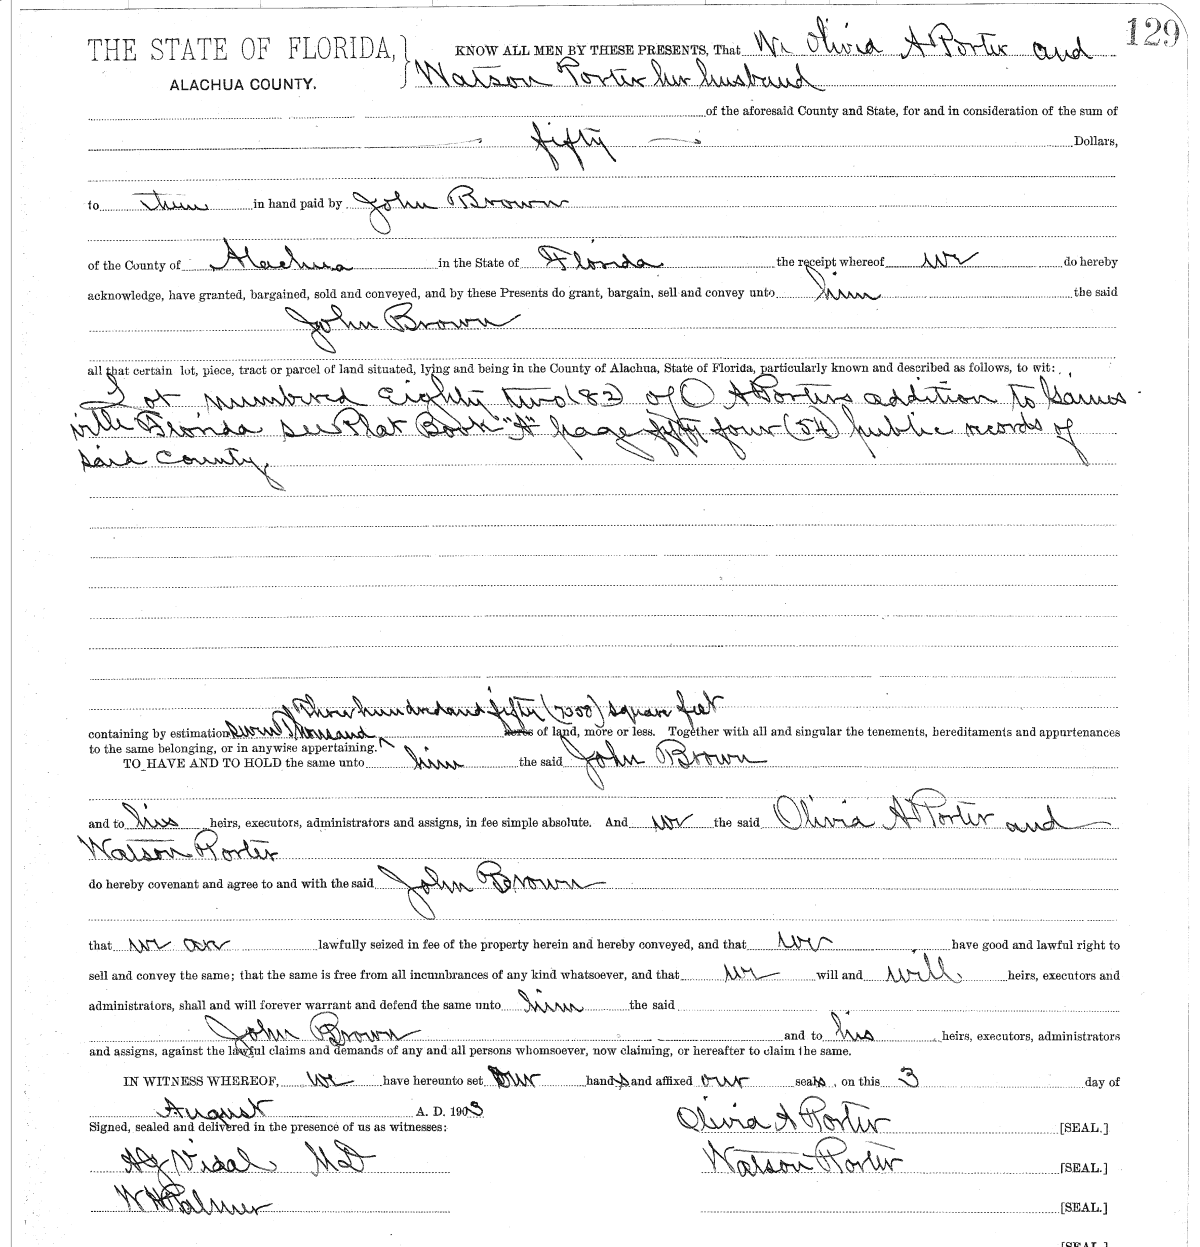 129
THE STATE OF FLORIDA, KNOW ALL MEN BY THESE PRESENTS, That We Olivia A Porter and
ALACHUA COUNTY. Watson Porter her husband
of the aforesaid County and State, for and in consideration of the sum of
fifty Dollars,
to them in hand paid by John Brown
of the County of Alachua in the State of Florida the receipt whereof we do hereby
acknowledge, have granted, bargained, sold and conveyed, and by these Presents do grant, bargain, sell and convey unto him the said
John Brown
all that certain lot, piece, tract or parcel of land situated, lying and being in the County of Alachua, State of Florida, particularly known and described as follows, to wit:
Lot numbered Eighty two (82) of O A Porters addition to Gaines
ville Florida see Plat Book "A" page fifty four (54) public records of
said County
Three hundred and fifty (7350) square feet
containing by estimation seven Thousand acres of land, more or less. Together with all and singular the tenements, hereditaments and appurtenances
to the same belonging, or in anywise appertaining.
TO HAVE AND TO HOLD the same unto him the said John Brown
and to his heirs, executors, administrators and assigns, in fee simple absolute. And we the said Olivia A Porter and
Watson Porter
do hereby covenant and agree to and with the said John Brown
that we are lawfully seized in fee of the property herein and hereby conveyed, and that we have good and lawful right to
sell and convey the same; that the same is free from all incumbrances of any kind whatsoever, and that we will and will heirs, executors and
administrators, shall and will forever warrant and defend the same unto him the said
John Brown and to his heirs, executors, administrators
and assigns, against the lawful claims and demands of any and all persons whomsoever, now claiming, or hereafter to claim the same.
IN WITNESS WHEREOF, we have hereunto set our hands and affixed our seals, on this 3 day of
August A. D. 1903
Signed, sealed and delivered in the presence of us as witnesses: Olivia A Porter [SEAL.]
Vidal MD Watson Porter [SEAL.]
W H Palmer [SEAL.]
[SEAL.]